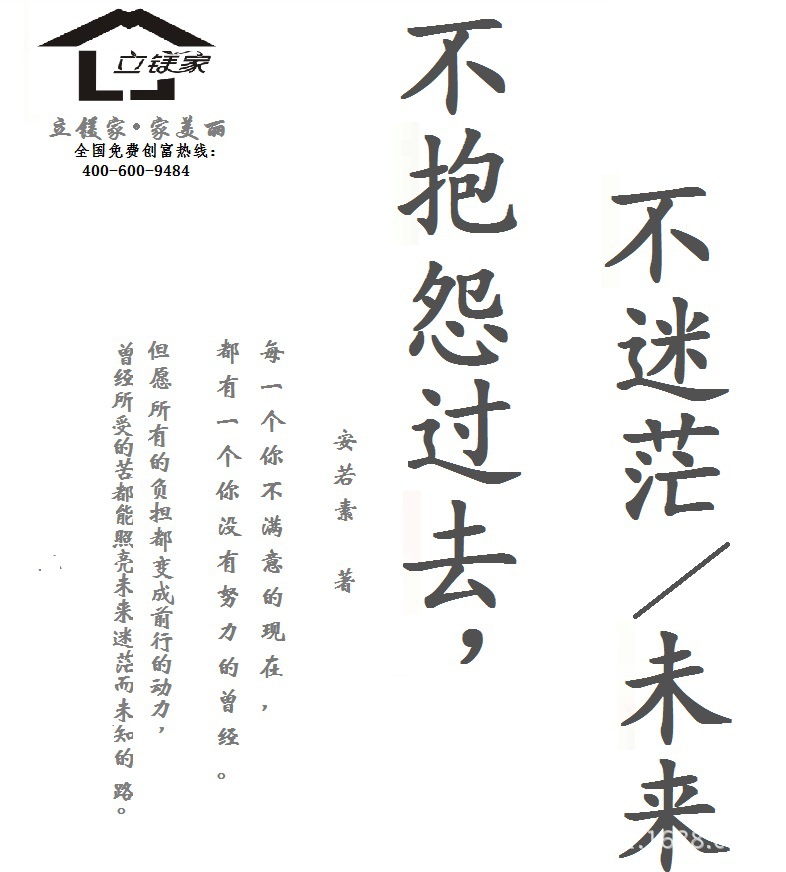 立镁家
立镁家·家美丽
全国免费创富热线：
400-600-9484
不抱怨过去，
不迷茫／未来
安若素 著
每一个你不满意的现在，
都有一个你没有努力的曾经。
但愿所有的负担都变成前行的动力，
曾经所受的苦都能照亮未来迷茫而未知的路。